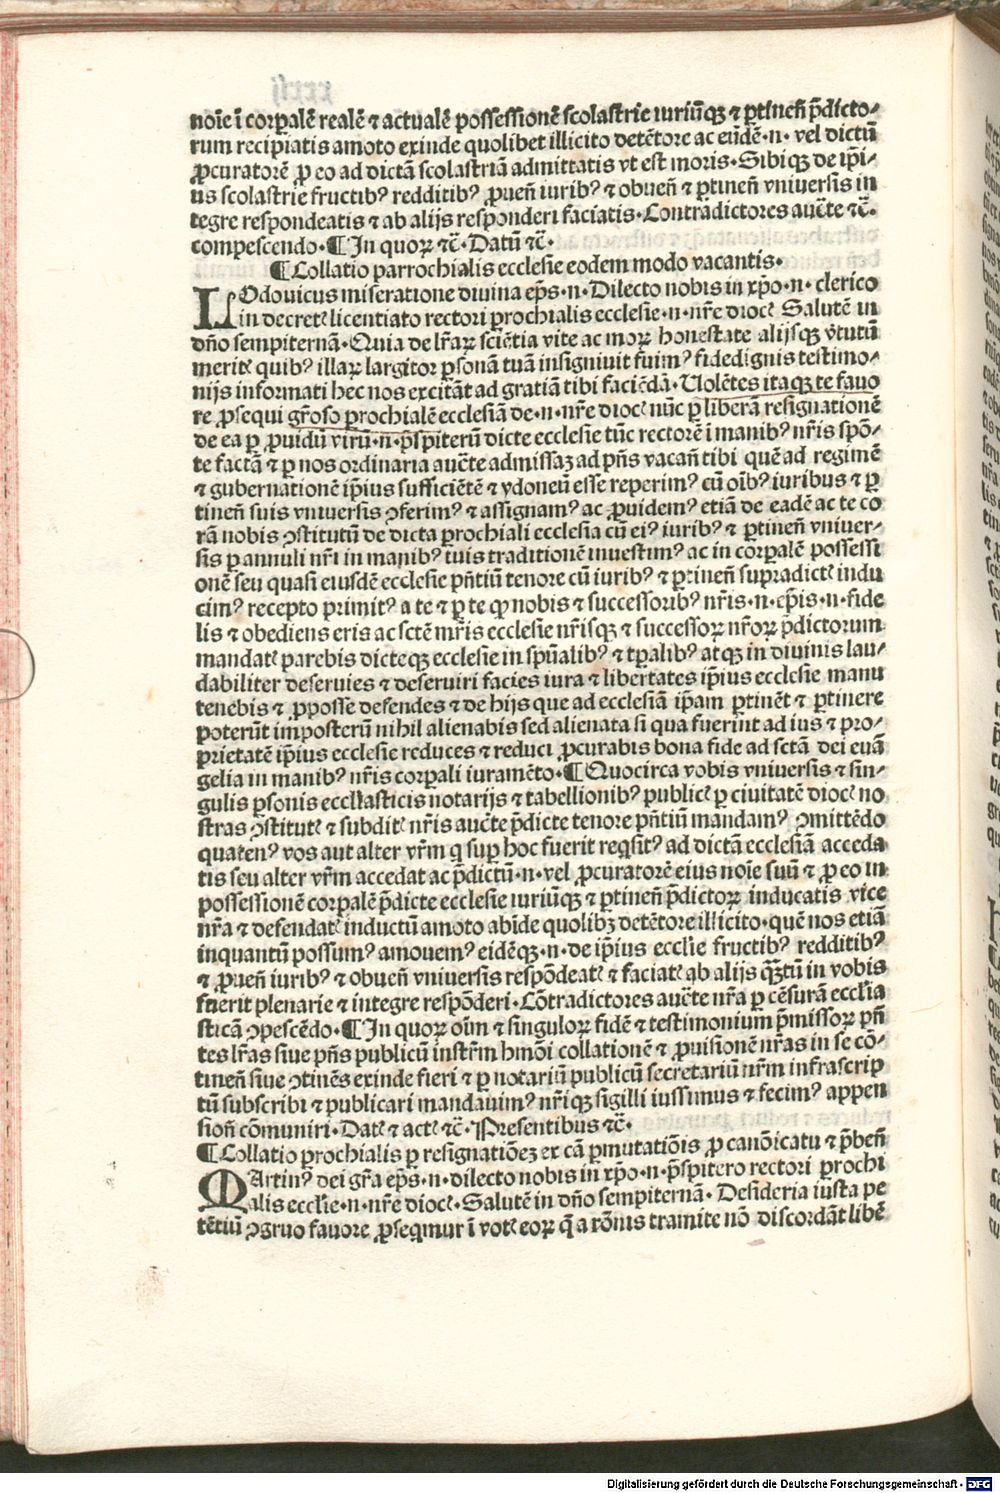 noīe ī corꝑalē realē ⁊ actualē possessionē scolastrie iuriūqꝫ ⁊ ꝑtineñ p̄dicto⸗
rum recipiatis amoto exinde quolibet illicito detētore ac eūdē·n·vel dictū
ꝓcuratorē ꝓ eo ad dictā scolastriā admittatis vt est moris·Sibiqꝫ de ip̄i⸗
us scolastrie fructibꝰ redditibꝰ ꝓueñ iuribꝰ ⁊ obueñ ⁊ ꝑtineñ vniuersis in
tegre respondeatis ⁊ ab alijs responderi faciatis·Contradictores auc̄te ⁊c̄·
compescendo·¶In quoꝝ ⁊c̄·Datū ⁊c̄·
¶Collatio parrochialis ecclesie eodem modo vacantis·
LOdouicus miseratione diuina ep̄s·n·Dilecto nobis in xp̄o·n·clerico
in decretꝭ licentiato rectori ꝑrochialis ecclesie·n·nr̄e diocꝭ Salutē in
dn̄o sempiternā·Quia de lr̄aꝝ sciētia vite ac moꝝ honestate alijsqꝫ v̄tutū
meritꝭ quibꝰ illaꝝ largitor ꝑsonā tuā insigniuit fuimꝰ fidedignis testimo⸗
nijs informati hec nos excitāt ad gratiā tibi faciēdā·Uolētes itaqꝫ te fauo
re ꝓsequi gr̄oso ꝑrochialē ecclesiā de·n·nr̄e diocꝭ nūc ꝑ liberā resignationē
de ea ꝑ ꝓuidū virū·n·p̄sꝑiterū dicte ecclesie tūc rectorē ī manibꝰ nr̄is spō⸗
te factā ⁊ ꝑ nos ordinaria auc̄te admissaꝫ ad p̄ñs vacañ tibi quē ad regimē
⁊ gubernationē ip̄ius sufficiētē ⁊ ydoneū esse reperimꝰ cū oībꝰ iuribus ⁊ ꝑ
tineñ suis vniuersis ꝯferimꝰ ⁊ assignamꝰ ac ꝓuidemꝰ etiā de eadē ac te co
rā nobis ꝯstitutū de dicta ꝑrochiali ecclesia cū eiꝰ iuribꝰ ⁊ ꝑtineñ vniuer⸗
sis ꝑ annuli nr̄i in manibꝰ tuis traditionē inuestimꝰ ac in corꝑalē possessi
onē seu quasi eiusdē ecclesie p̄ñtiū tenore cū iuribꝰ ⁊ ꝑtineñ supradictꝭ indu
cimꝰ recepto primitꝰ a te ⁊ ꝑ te ꝙ nobis ⁊ successoribꝰ nr̄is·n·ep̄is·n·fide
lis ⁊ obediens eris ac sctē mr̄is ecclesie nr̄isqꝫ ⁊ successoꝝ nr̄oꝝ p̄dictorum
mandatꝭ parebis dicteqꝫ ecclesie in spūalibꝰ ⁊ tꝑalibꝰ atqꝫ in diuinis lau⸗
dabiliter deseruies ⁊ deseruiri facies iura ⁊ libertates ip̄ius ecclesie manu
tenebis ⁊ ꝓposse defendes ⁊ de hijs que ad ecclesiā ip̄am ꝑtinēt ⁊ ꝑtinere
poterūt imposterū nihil alienabis sed alienata si qua fuerint ad ius ⁊ pro⸗
prietatē ip̄ius ecclesie reduces ⁊ reduci ꝓcurabis bona fide ad sctā dei euā
gelia in manibꝰ nr̄is corꝑali iuramēto·¶Quocirca vobis vniuersis ⁊ sin⸗
gulis ꝑsonis eccl̄iasticis notarijs ⁊ tabellionibꝰ publicꝭ ꝑ ciuitatē diocꝭ no
stras ꝯstitutꝭ ⁊ subditꝭ nr̄is auc̄te p̄dicte tenore p̄ñtiū mandamꝰ ꝯmittēdo
quatenꝰ vos aut alter vr̄m q suꝑ hoc fuerit reqͥsitꝰ ad dictā ecclesiā acceda
tis seu alter vr̄m accedat ac p̄dictū·n·vel ꝓcuratorē eius noīe suū ⁊ ꝓ eo in
possessionē corꝑalē p̄dicte ecclesie iuriūqꝫ ⁊ ꝑtineñ p̄dictoꝝ inducatis vice
nr̄a ⁊ defendatꝭ inductū amoto abīde quolibꝫ detētore illicito·quē nos etiā
inquantū possumꝰ amouemꝰ eidēqꝫ·n·de ip̄ius eccl̄ie fructibꝰ redditibꝰ
⁊ ꝓueñ iuribꝰ ⁊ obueñ vniuersis respōdeatꝭ ⁊ faciatꝭ ab alijs qͣꝫtū in vobis
fuerit plenarie ⁊ integre respōderi·Cōtradictores auc̄te nr̄a ꝑ cēsurā eccl̄ia
sticā ꝯpescēdo·¶In quoꝝ oīm ⁊ singuloꝝ fidē ⁊ testimonium p̄missoꝝ p̄ñ
tes lr̄as siue p̄ñs publicū instr̄m hmōi collationē ⁊ ꝓuisionē nr̄as in se cō⸗
tineñ siue ꝯtinēs exinde fieri ⁊ ꝑ notariū publicū secretariū nr̄m infrascrip
tū subscribi ⁊ publicari mandauimꝰ nr̄iqꝫ sigilli iussimus ⁊ fecimꝰ appen
sioñ cōmuniri·Datꝭ ⁊ actꝭ ⁊c̄·Presentibus ⁊c̄·
¶Collatio ꝑrochialis ꝑ resignatiōeꝫ ex cā ꝑmutatiōis ꝓ canōicatu ⁊ p̄beñ
MArtinꝰ dei gr̄a ep̄s·n·dilecto nobis in xp̄o·n·p̄sꝑitero rectori ꝑrochi
alis eccl̄ie·n·nr̄e diocꝭ·Salutē in dn̄o sempiternā·Desideria iusta pe
tētiū ꝯgruo fauore ꝓseqmur ī votꝭ eoꝝ q̄ a rōnis tramite nō discordāt libē
Digitalisierung gefördert durch die Deutsche Forschungsgemeinschaft - DFG